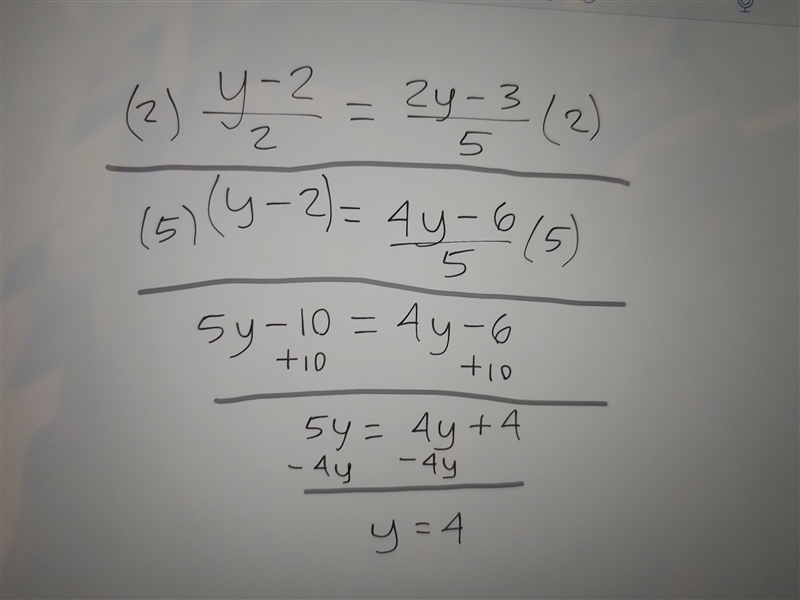 (2) y-2/2 = 2y-3/5 (2)
(5)(y-2) = 4y-6/5 (5)
5y-10 = 4y-6
+10 +10
5y = 4y+4
-4y -4y
y=4